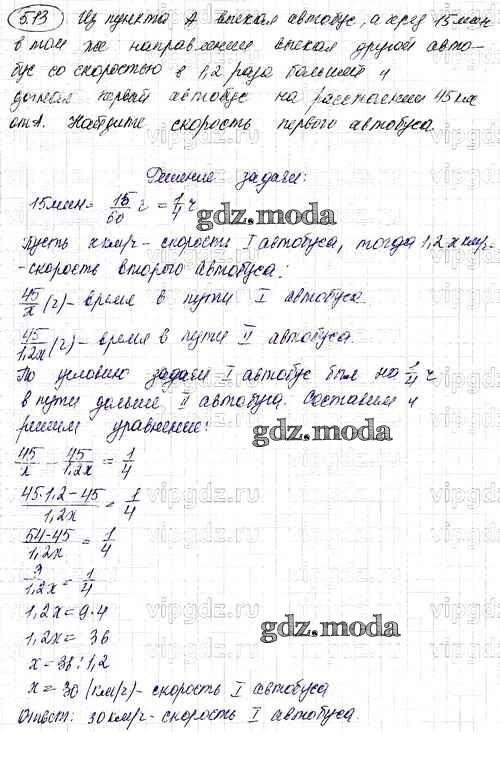 513 Из пункта А выехал автобус, а через 15 мин
в том же направлении выехал другой авто-
бус со скоростью в 1,2 раза большей и
догнал первый автобус на расстоянии 45 км
от А. Найдите скорость первого автобуса.
Решение задачи:
15 мин = 15/60 ч = 1/4 ч
gdz.moda
Пусть х км/ч - скорость I автобуса, тогда 1,2 х км/ч-
-скорость второго автобуса:
45/х (ч) - время в пути I автобуса.
45/1,2х (ч) - время в пути II автобуса.
По условию задачи I автобус был на 1/4 ч
в пути дольше II автобуса. Составим и
решим уравнение:
gdz.moda
45/х - 45/1,2х = 1/4
45·1,2-45/1,2х = 1/4
54-45/1,2х = 1/4
9/1,2х = 1/4
1,2х = 9·4
1,2х = 36
gdz.moda
х = 36:1,2
х = 30 (км/ч) - скорость I автобуса
Ответ: 30 км/ч - скорость I автобуса.
vipgdz.ru